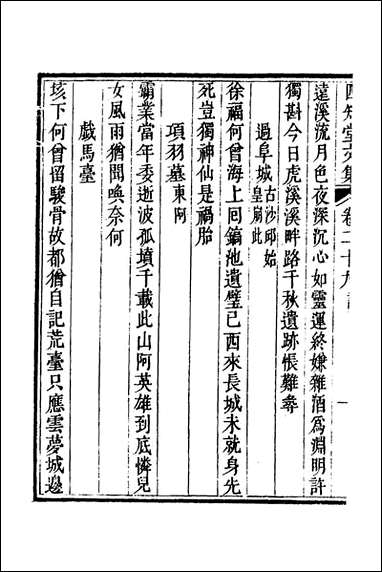 四知堂文集 卷二十九 詩 一
遠溪流月色夜深沉心如靈運終嫌雜酒爲淵明許
獨斟今日虎溪溪畔路千秋遺跡悵難尋
過阜城 古沙邱始皇崩此
徐福何曾海上回鎬池遺璧已西來長城未就身先
死豈獨神仙是禍胎
項羽墓 東阿
霸業當年委逝波孤墳千載此山阿英雄到底憐兒
女風雨猶聞喚奈何
戲馬臺
垓下何曾留駿骨故都猶自記荒臺只應雲夢城邊